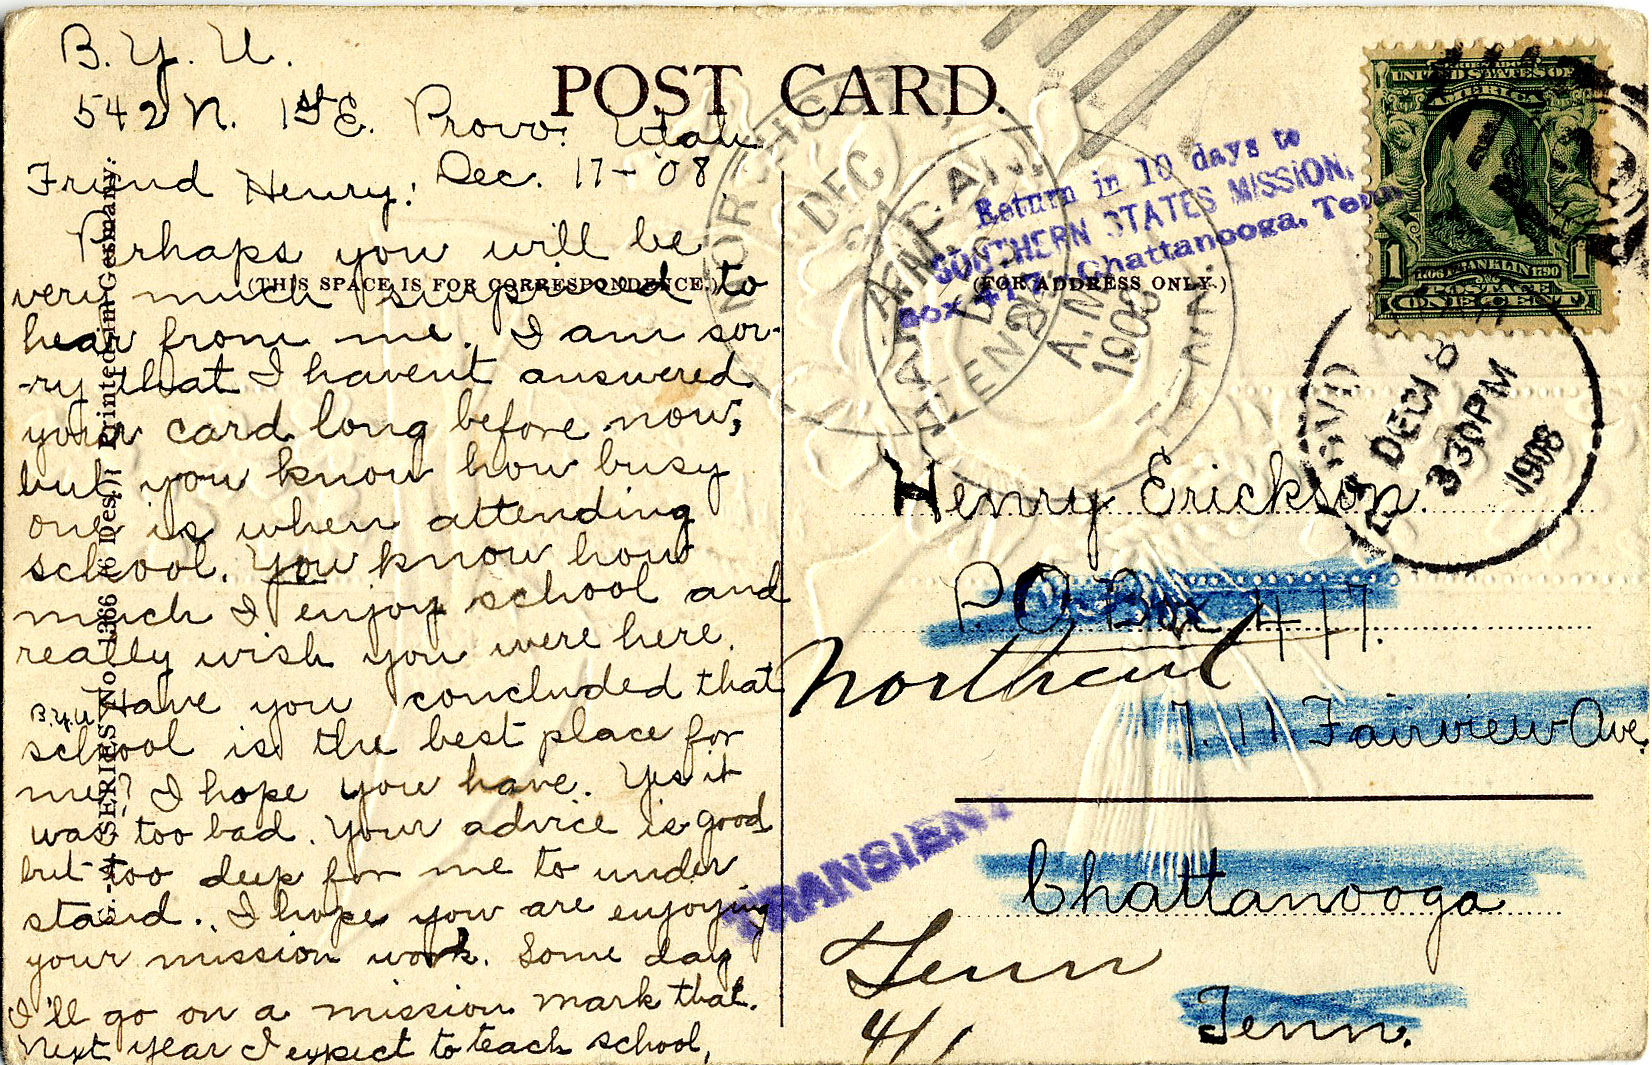 B. Y. U.
542 N. 1st E. Provo. Utah
Friend Henry: Dec. 17-'08
Perhaps you will be
very much surprised to
hear from me. I am sor-
-ry that I havent answered
your card long before now;
but you know how busy
one is when attending
school. You know how
much I enjoy school and
really wish you were here.
Have you concluded that
B.Y.U
school is the best place for
me? I hope you have. Yes it
was too bad. Your advice is good
but too deep for me to under
stand. I hope you are enjoying
your mission work. Some day
I'll go on a mission mark that.
Next year I expect to teach school,
POST CARD.
(THIS SPACE IS FOR CORRESPONDENCE.)
(FOR ADDRESS ONLY.)
SERIES No. 1366 Des. Printed in Germany.
Return in 10 days to
SOUTHERN STATES MISSION,
Box 417, Chattanooga, Tenn
UNITED STATES OF
AMERICA
1 1706 FRANKLIN 1790 1
POSTAGE
ONE CENT
DEC
21
A.M.
1908
TENN.
DEC 18
3 30 PM
1908
Henry Erickson.
P.O. Box 417.
Northcut
711 Fairview Ave.
TRANSIENT
Chattanooga
Tenn
Tenn.
4/